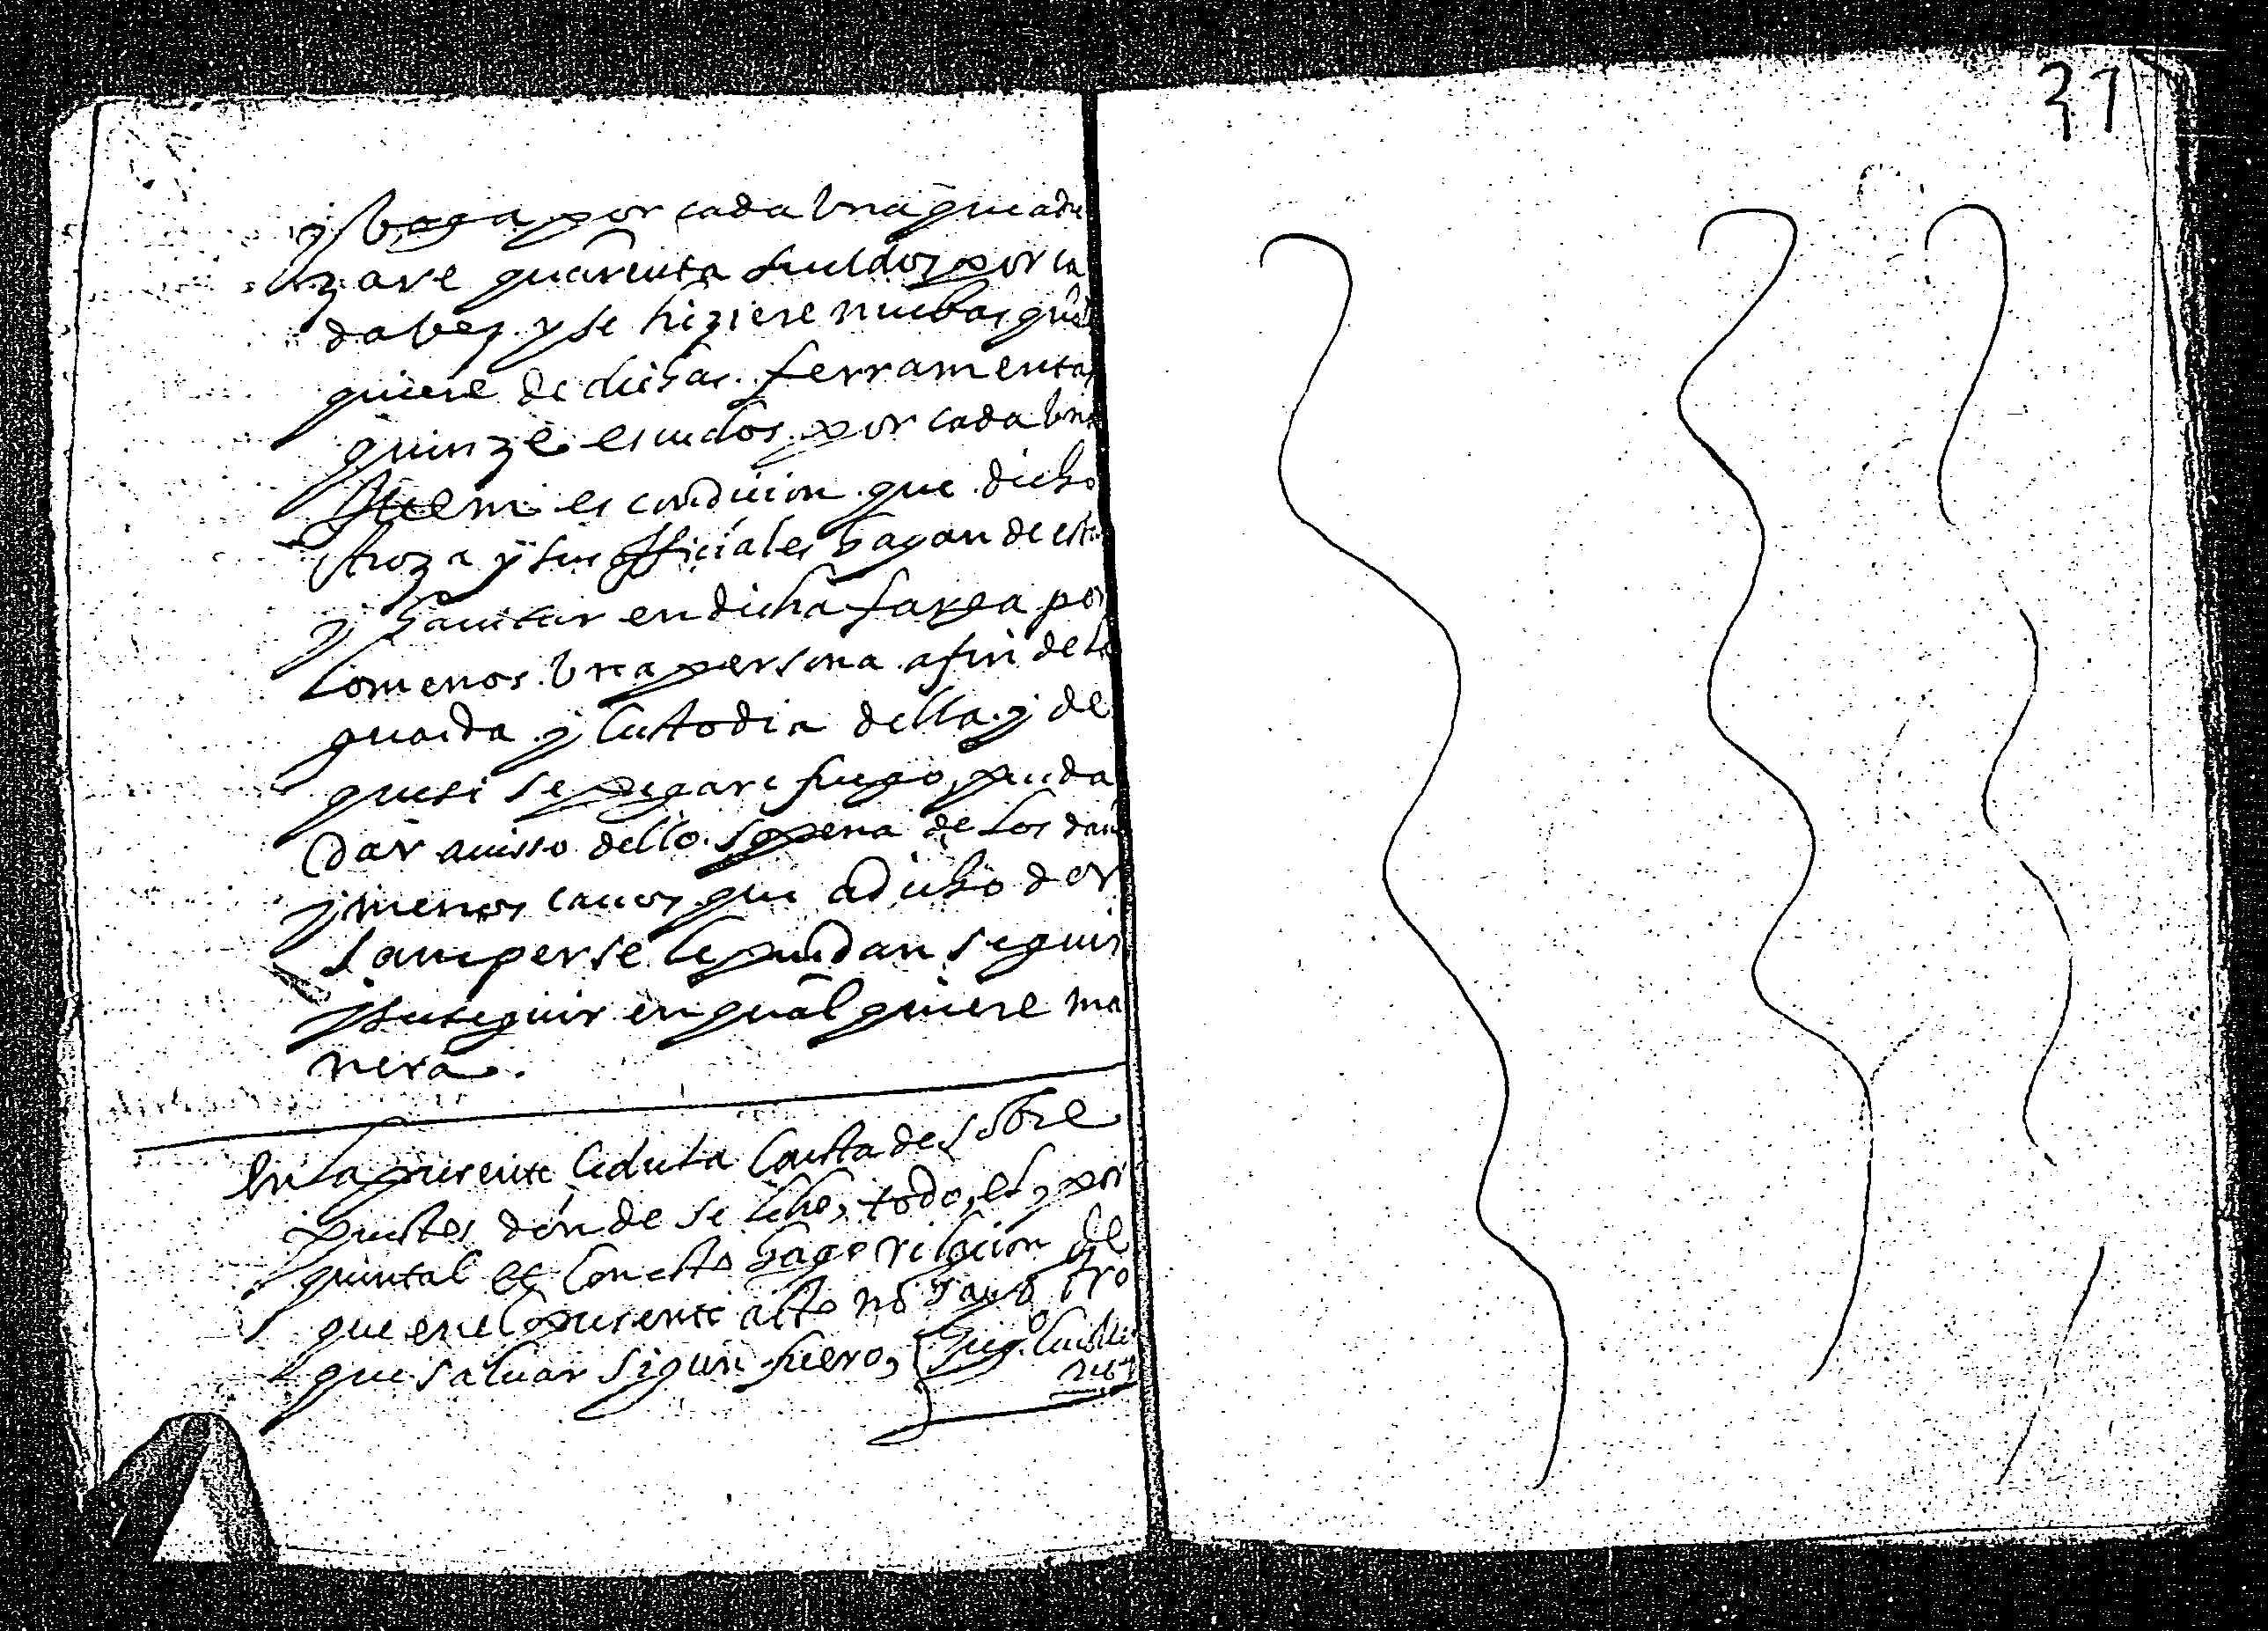 y haga por cada una que adre
zare quarenta sueldos por ca
da vez. y se hiziere nuebas quales
quiere de dichas. ferramentas
quinze escudos. por cada una
Ittem es condicion que dicho
Aroza y sus officiales hagan de estar
y hauitar en dicha farga por
lo menos. una persona afin de la
guarda y custodia della. y de
que si se pegare fuego, pueda
dar auisso dello. so pena de los daños
y menos cauos que a dicho don
se le puedan seguir
y suseguir en qual quiere ma
nera.
En la presente cedula consta de sobre
puestos donde se lehe, todo, el, por
quintal et con esto hago relacion de
que en el presente acto no hay otro
que saluar sigun fuero,
31